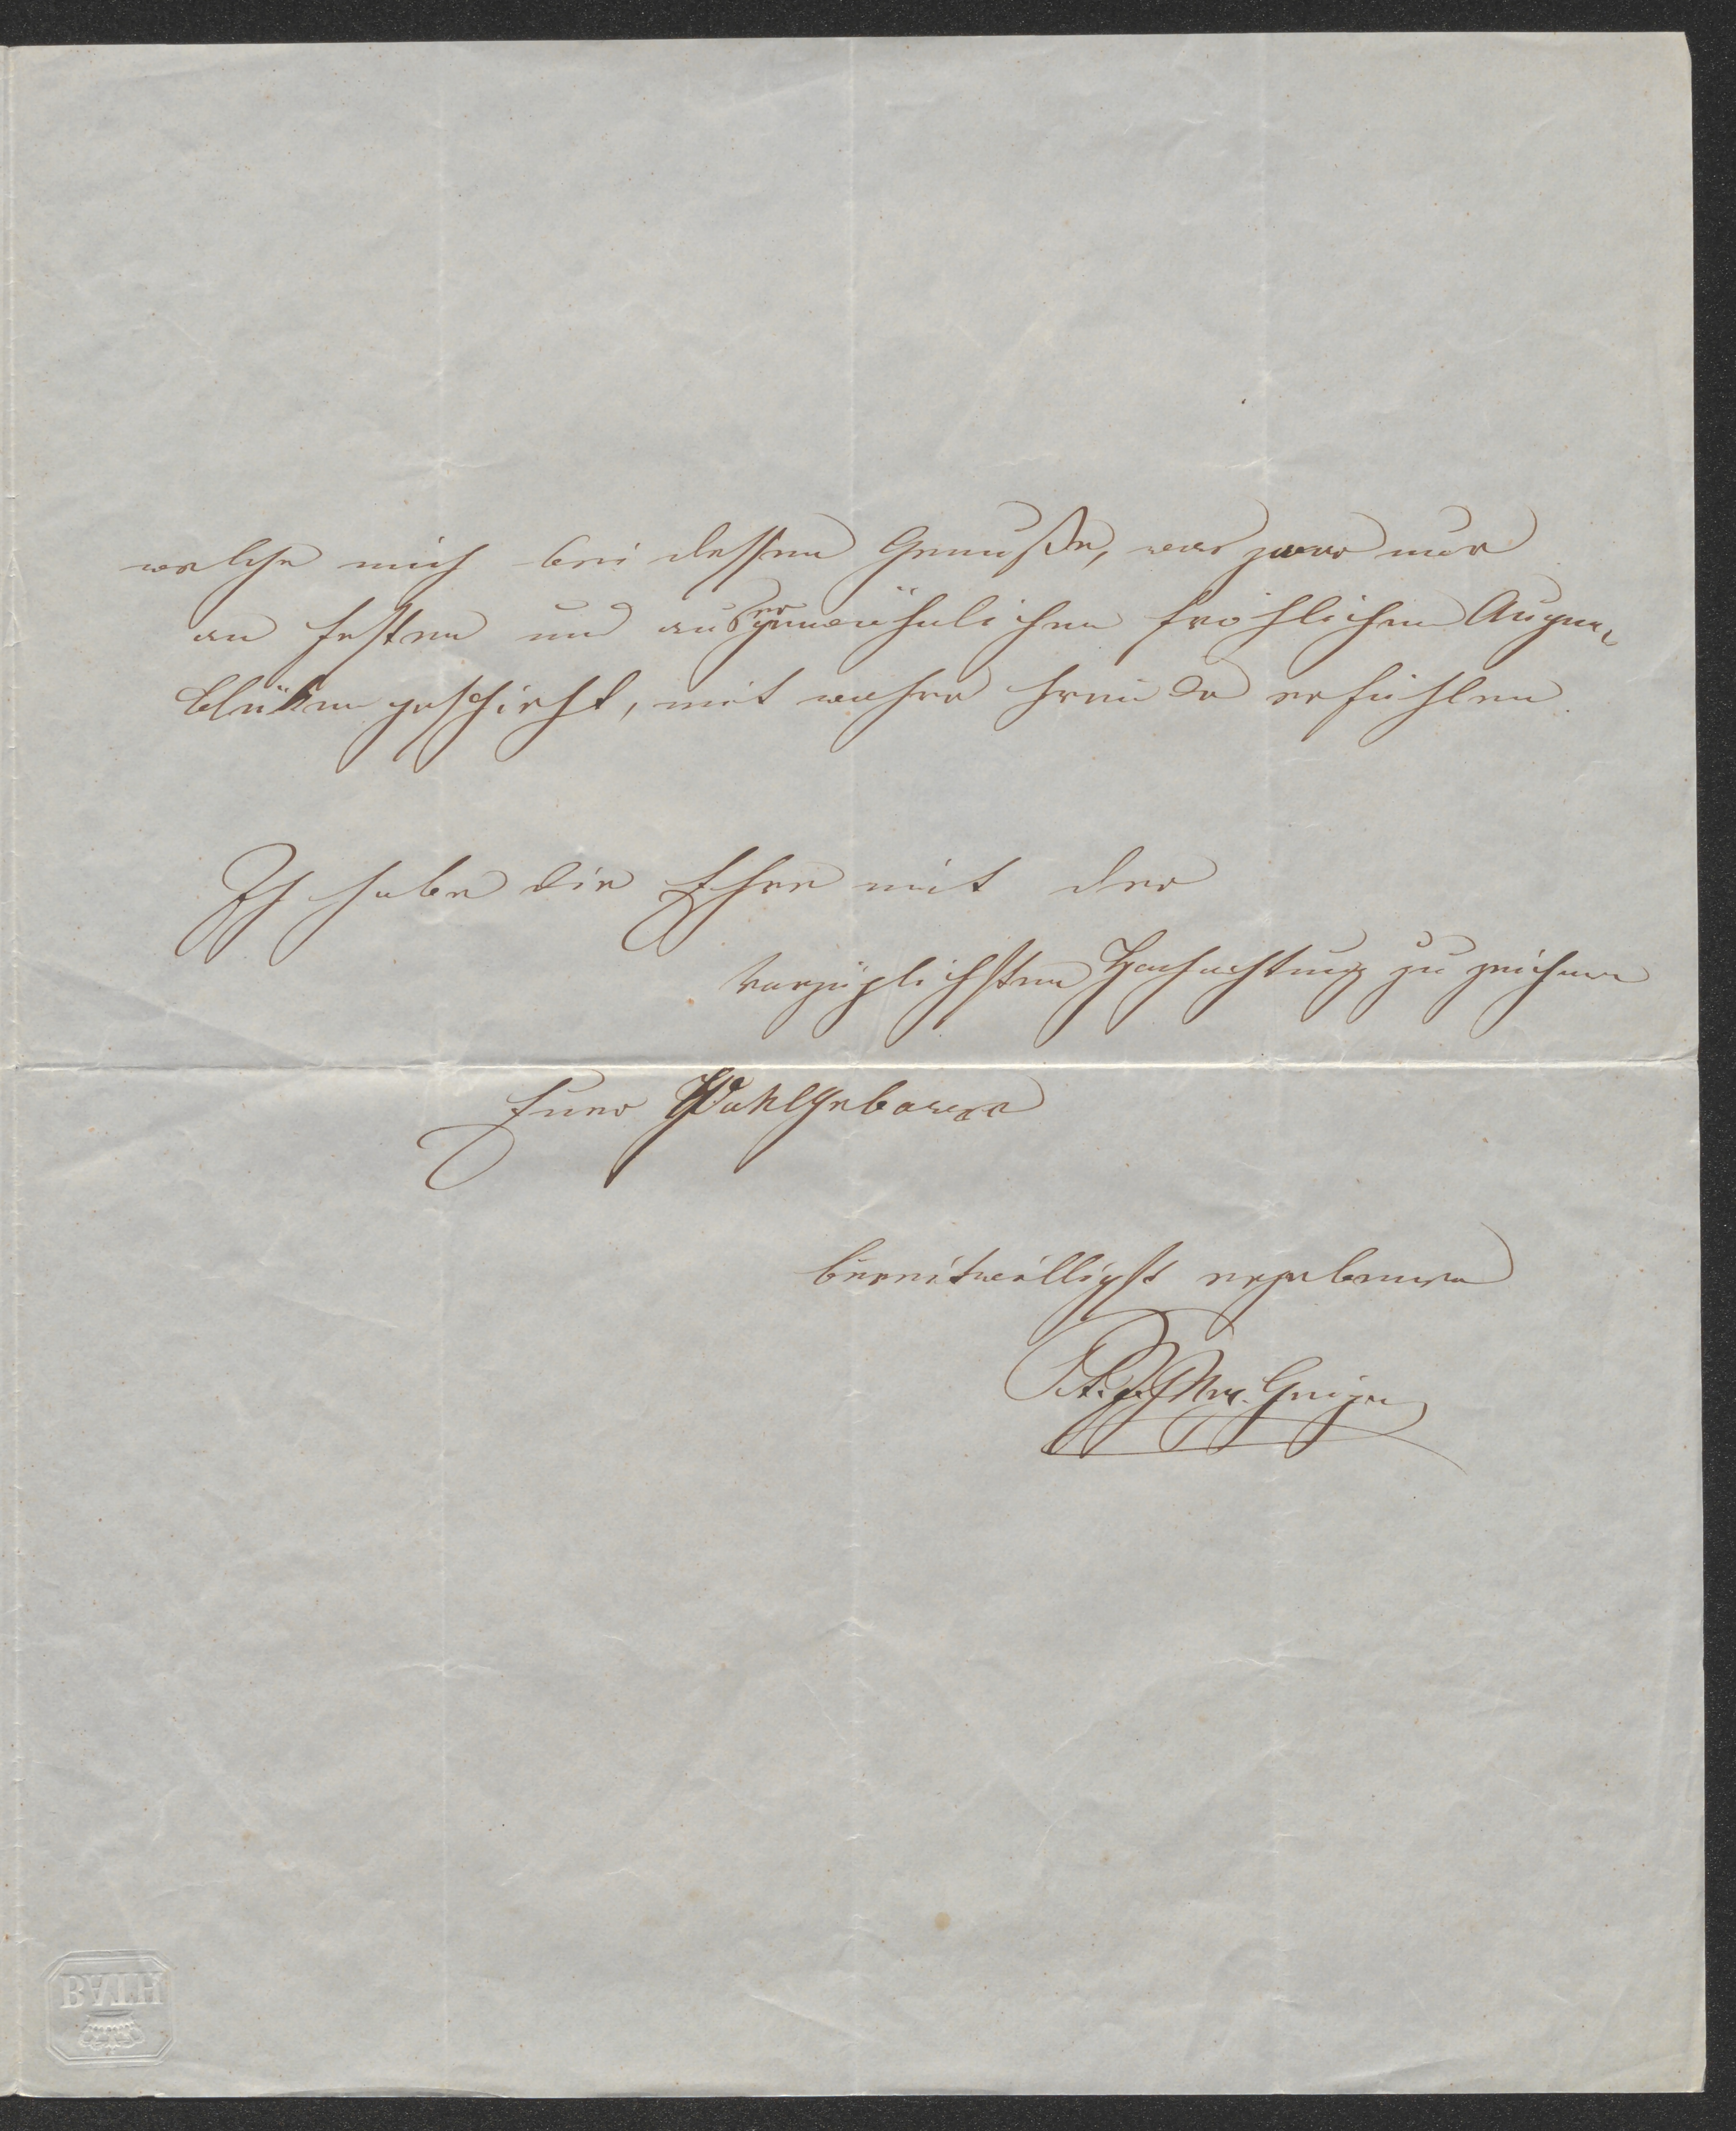 welche mich bei dessen Genuße, was zwar nur
an festen und außergewöhnlichen fröhlichen Augen¬
blüken geschieht, mit wahre Freude erfühlen.
Ich habe die Ehre mit der
vorzüglichsten Hochachtung zu zeichnen
Euer Wohlgeboren
bereitwilligst ergebener
Geiger
BATH